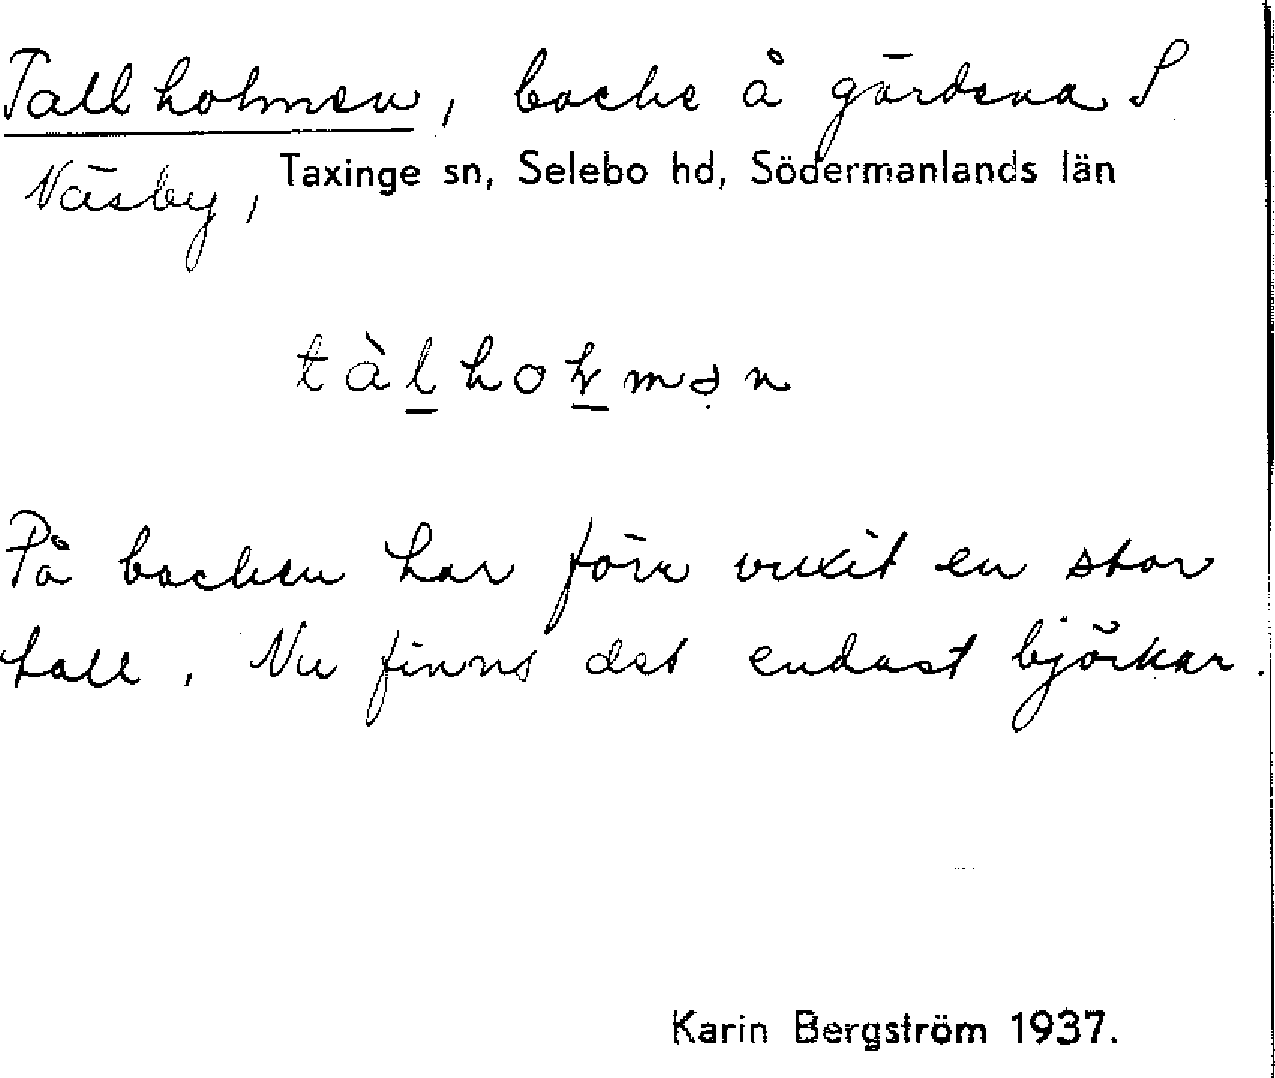 Tallholmen, backe å gärdena S
Näsby, Taxinge sn, Selebo hd, Södermanlands län
tàlholmən
På backen har förr vuxit en stor
tall. Nu finns det endast björkar.
Karin Bergström 1937.